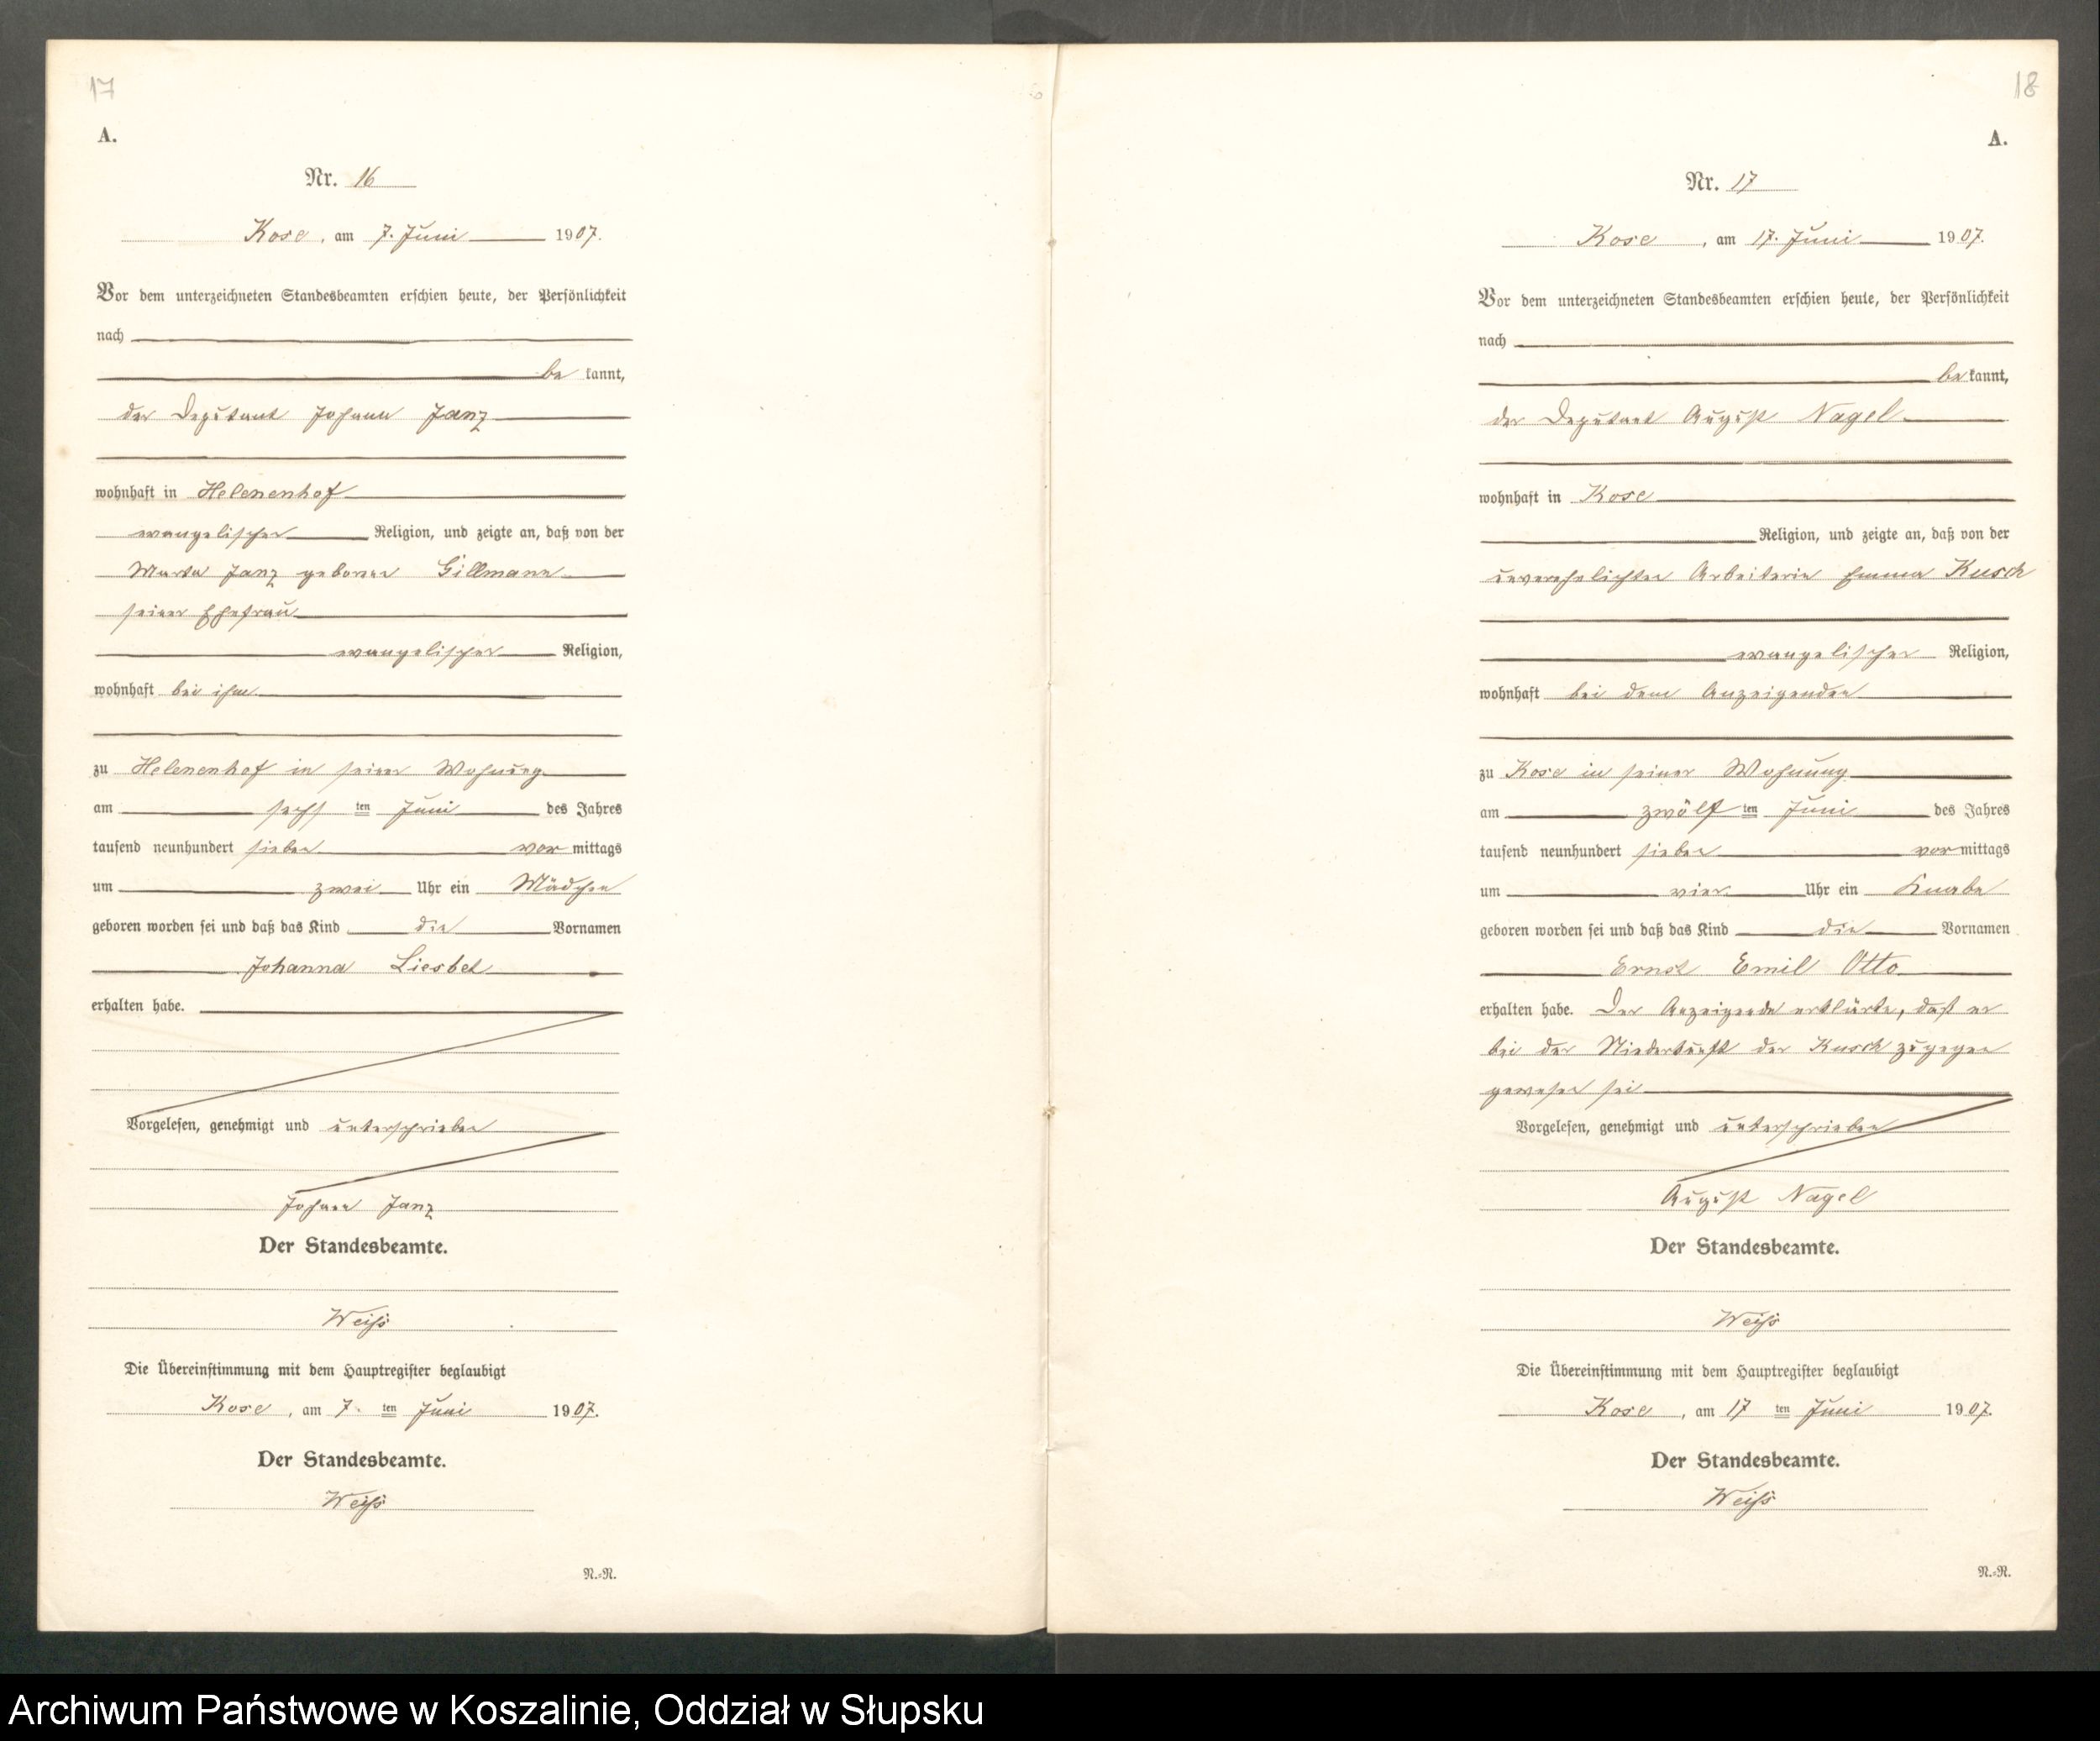 17
A.
Nr. 16
Kose, am 7. Juni 1907.
Vor dem unterzeichneten Standesbeamten erschien heute, der Persönlichkeit
nach
be kannt,
der Deputant Johann Janz
wohnhaft in Helenenhof
evangelischer Religion, und zeigte an, daß von der
Marta Janz geborene Gillmann
seiner Ehefrau
evangelischer Religion,
wohnhaft bei ihm
zu Helenenhof in seiner Wohnung
am sechs ten Juni des Jahres
tausend neunhundert sieben vor mittags
um zwei Uhr ein Mädchen
geboren worden sei und daß das Kind die Vornamen
Johanna Liesbet
erhalten habe.
Vorgelesen, genehmigt und unterschrieben
Johann Janz
Der Standesbeamte.
Weiß
Die Übereinstimmung mit dem Hauptregister beglaubigt
Kose, am 7. ten Juni 1907.
Der Standesbeamte.
Weiß
N.=N.
18
A.
Nr. 17
Kose, am 17. Juni 1907.
Vor dem unterzeichneten Standesbeamten erschien heute, der Persönlichkeit
nach
be kannt,
der Deputant August Nagel
wohnhaft in Kose
Religion, und zeigte an, daß von der
unverehelichten Arbeiterin Emma Kusch
evangelischer Religion,
wohnhaft bei dem Anzeigenden
zu Kose in seiner Wohnung
am zwölf ten Juni des Jahres
tausend neunhundert sieben vor mittags
um vier Uhr ein Knabe
geboren worden sei und daß das Kind die Vornamen
Ernst Emil Otto
erhalten habe. Der Anzeigende erklärte, daß er
bei der Niederkunft der Kusch zugegen
gewesen sei
Vorgelesen, genehmigt und unterschrieben
August Nagel
Der Standesbeamte.
Weiß
Die Übereinstimmung mit dem Hauptregister beglaubigt
Kose, am 17 ten Juni 1907.
Der Standesbeamte.
Weiß
N.=N.
Archiwum Państwowe w Koszalinie, Oddział w Słupsku